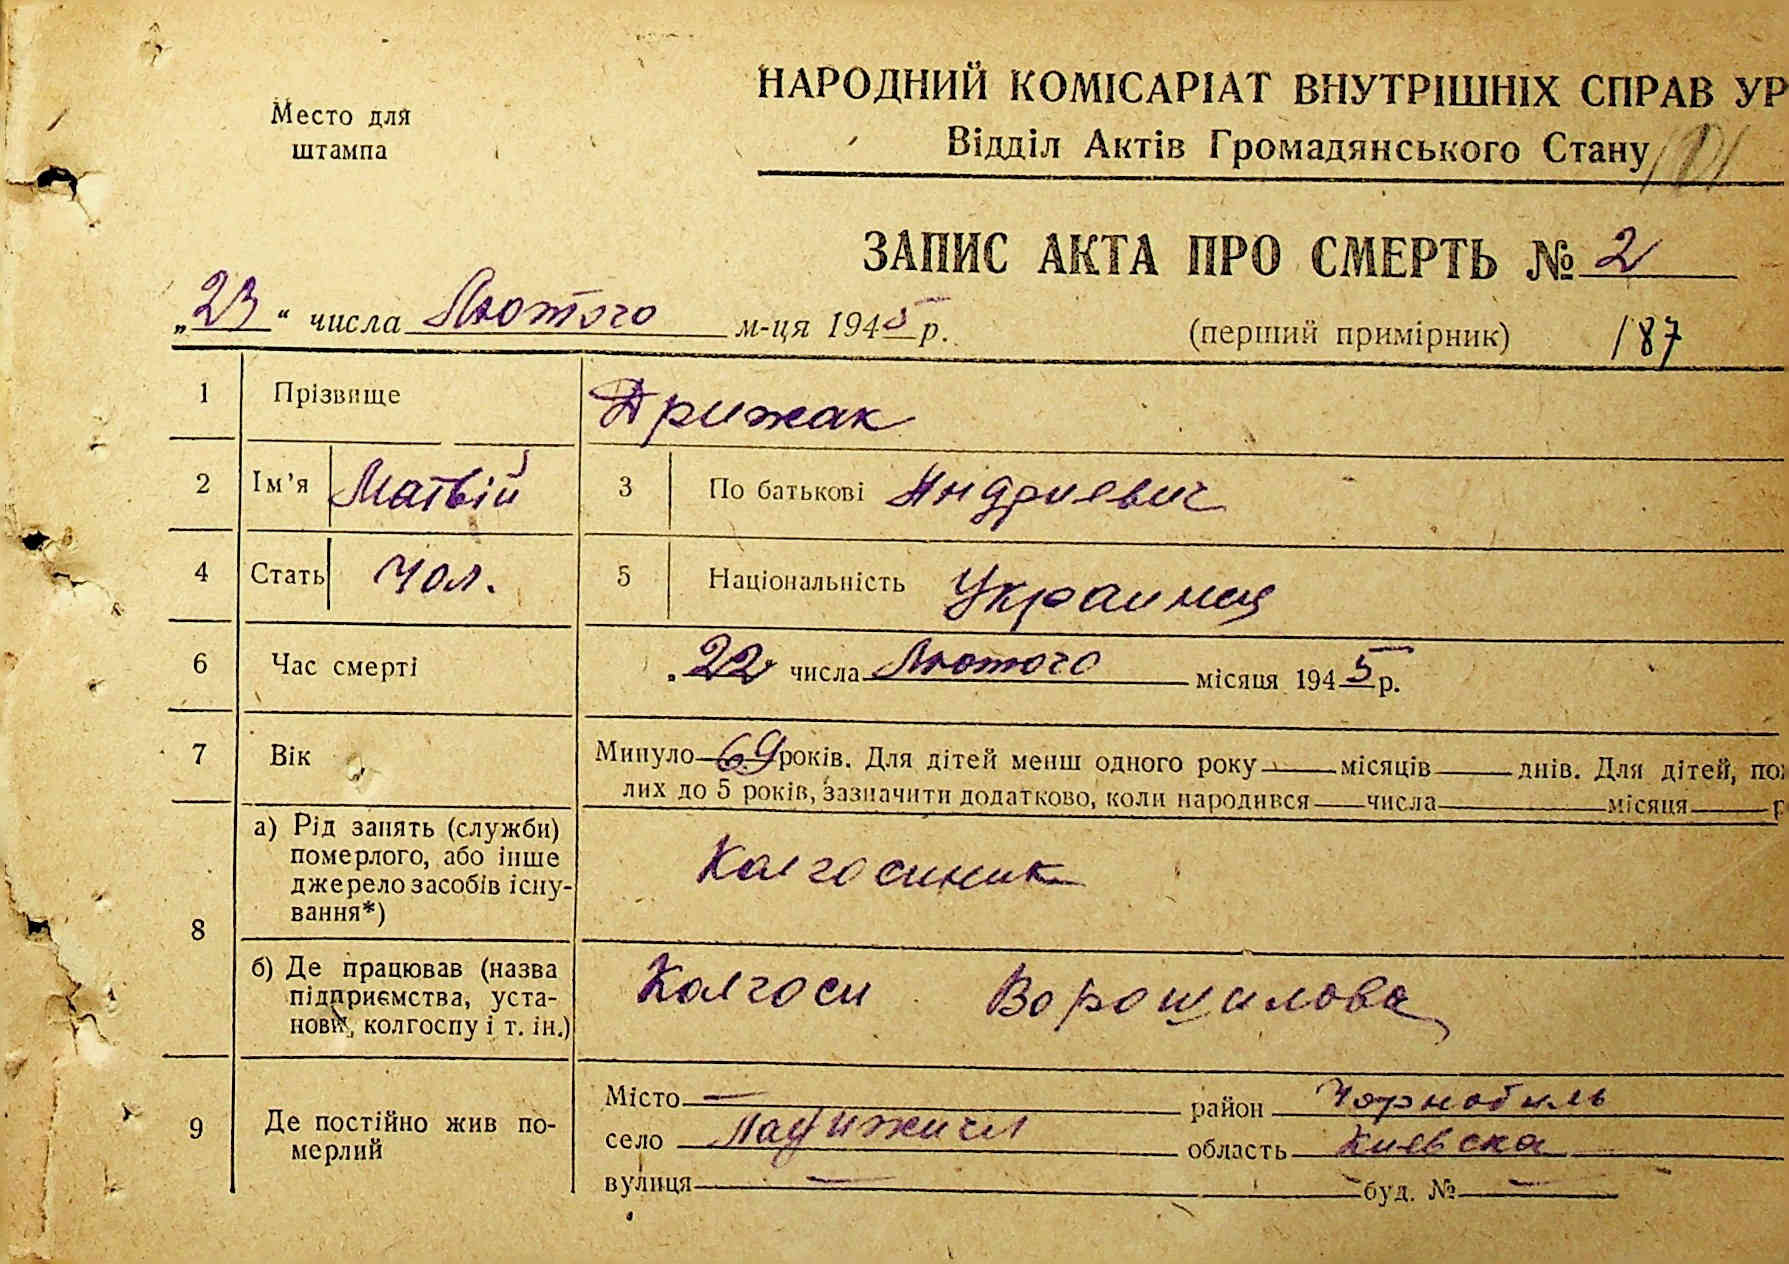 Место для
штампа
НАРОДНИЙ КОМІСАРІАТ ВНУТРІШНІХ СПРАВ УР
Відділ Актів Громадянського Стану
ЗАПИС АКТА ПРО СМЕРТЬ № 2
„23“ числа Лютого м-ця 1945 р. (перший примірник) 187
1 Прізвище Дрижак
2 Ім’я Матвій 3 По батькові Андриевич
4 Стать Чол. 5 Національність Украинец
6 Час смерті 22 числа Лютого місяця 1945 р.
7 Вік Минуло 69 років. Для дітей менш одного року — місяців — днів. Для дітей,
лих до 5 років, зазначити додатково, коли народився — числа — місяця — р
8 а) Рід занять (служби)
померлого, або інше
джерело засобів існу-
вання*) Колгоспник
б) Де працював (назва
підприємства, уста-
нови, колгоспу і т. ін.) Колгосп Ворошилова
9 Де постійно жив по-
мерлий
Місто — район Чорнобиль
село Ладижичи область Киевска
вулиця — буд. № —